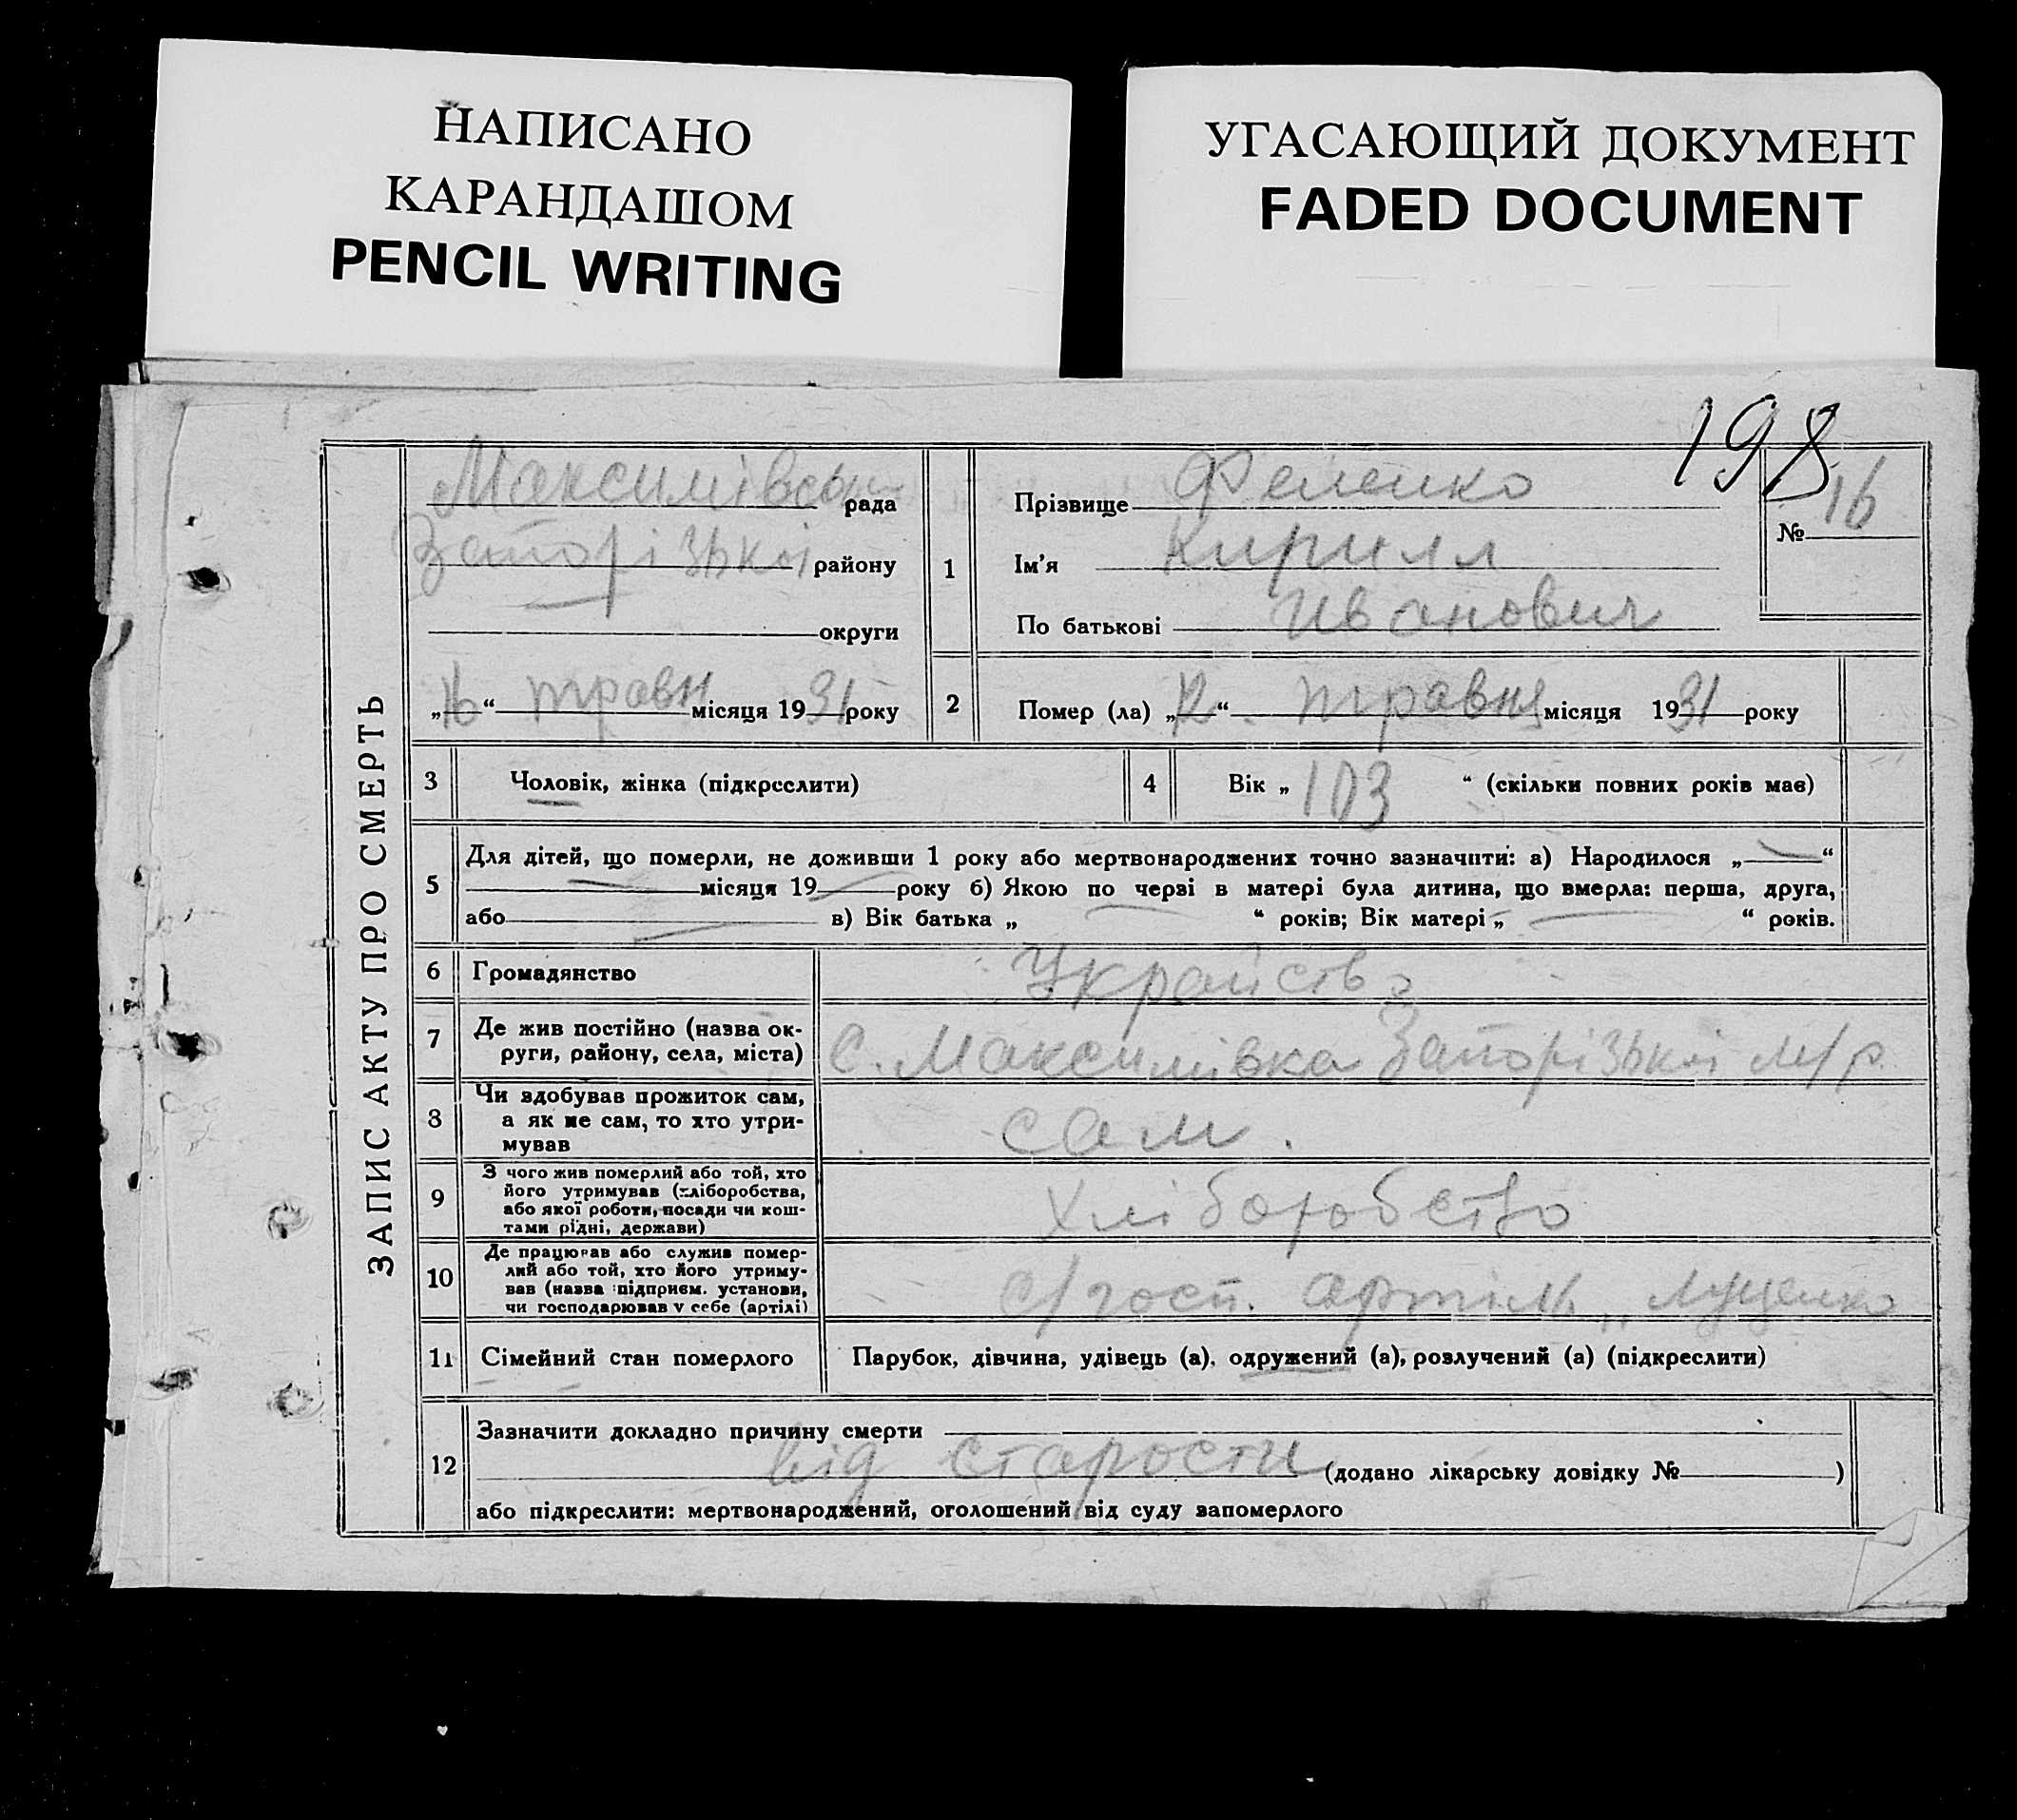 НАПИСАНО
КАРАНДАШОМ
PENCIL WRITING
УГАСАЮЩИЙ ДОКУМЕНТ
FADED DOCUMENT
198
ЗАПИС АКТУ ПРО СМЕРТЬ
Максимівська рада
Запорізькоі району
округи
„16“ травн місяця 1931 року
1
Прізвище Феленко
Ім'я Кирилл
По батькові Иванович
№ 16
2 Помер (ла) „12“ травня місяця 1931 року
3 Чоловік, жінка (підкреслити)
4 Вік „103“ (скільки повних років має)
5 Для дітей, що померли, не доживши 1 року або мертвонароджених точно зазначити: а) Народилося „—“
місяця 19 року б) Якою по черзі в матері була дитина, що вмерла: перша, друга,
або в) Вік батька „ “ років; Вік матері „ “ років.
6 Громадянство Украйнство
7 Де жив постійно (назва ок-
руги, району, села, міста) с. Максимівка Запорізькоі м/р.
8 Чи здобував прожиток сам,
а як не сам, то хто утри-
мував сам.
9 З чого жив померлий або той, хто
його утримував (хліборобства,
або якої роботи, посади чи кош-
тами рідні, держави) хліборобство
10 Де працював або служив помер-
лий або той, хто його утриму-
вав (назва підприєм. установи,
чи господарював у себе (артілі) с/госп. артіль „Луценко
11 Сімейний стан померлого Парубок, дівчина, удівець (а), одружений (а), розлучений (а) (підкреслити)
12 Зазначити докладно причину смерти
від старости (додано лікарську довідку № )
або підкреслити: мертвонароджений, оголошений від суду запомерлого